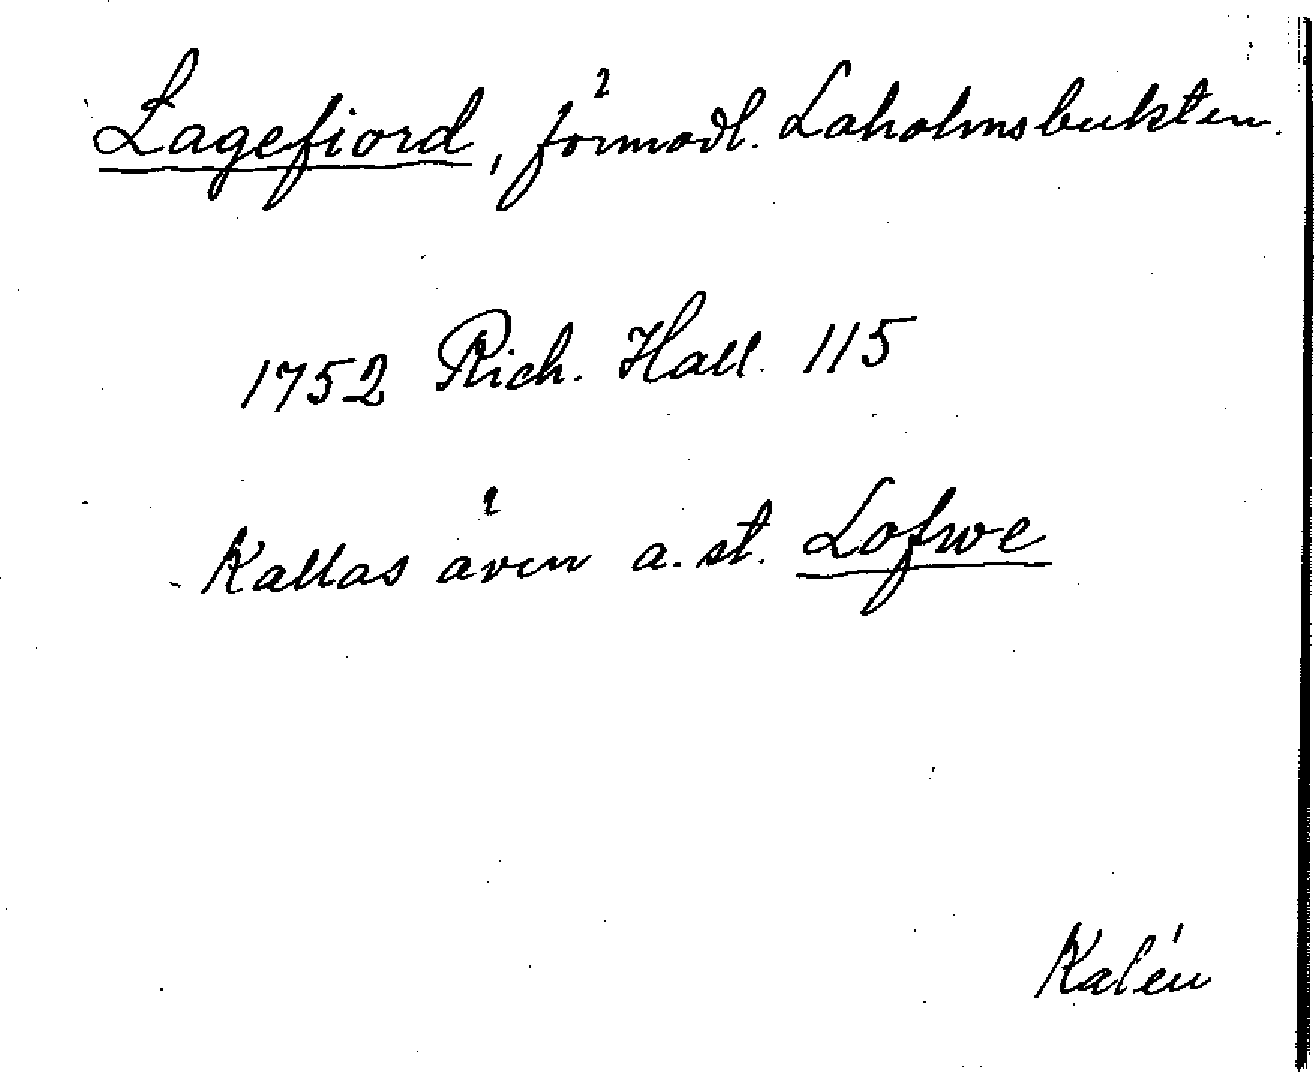 Lagefiord, förmodl. Laholmsbukten.
1752 Rich. Hall. 115
Kallas även a. st. Lofwe
Kalén